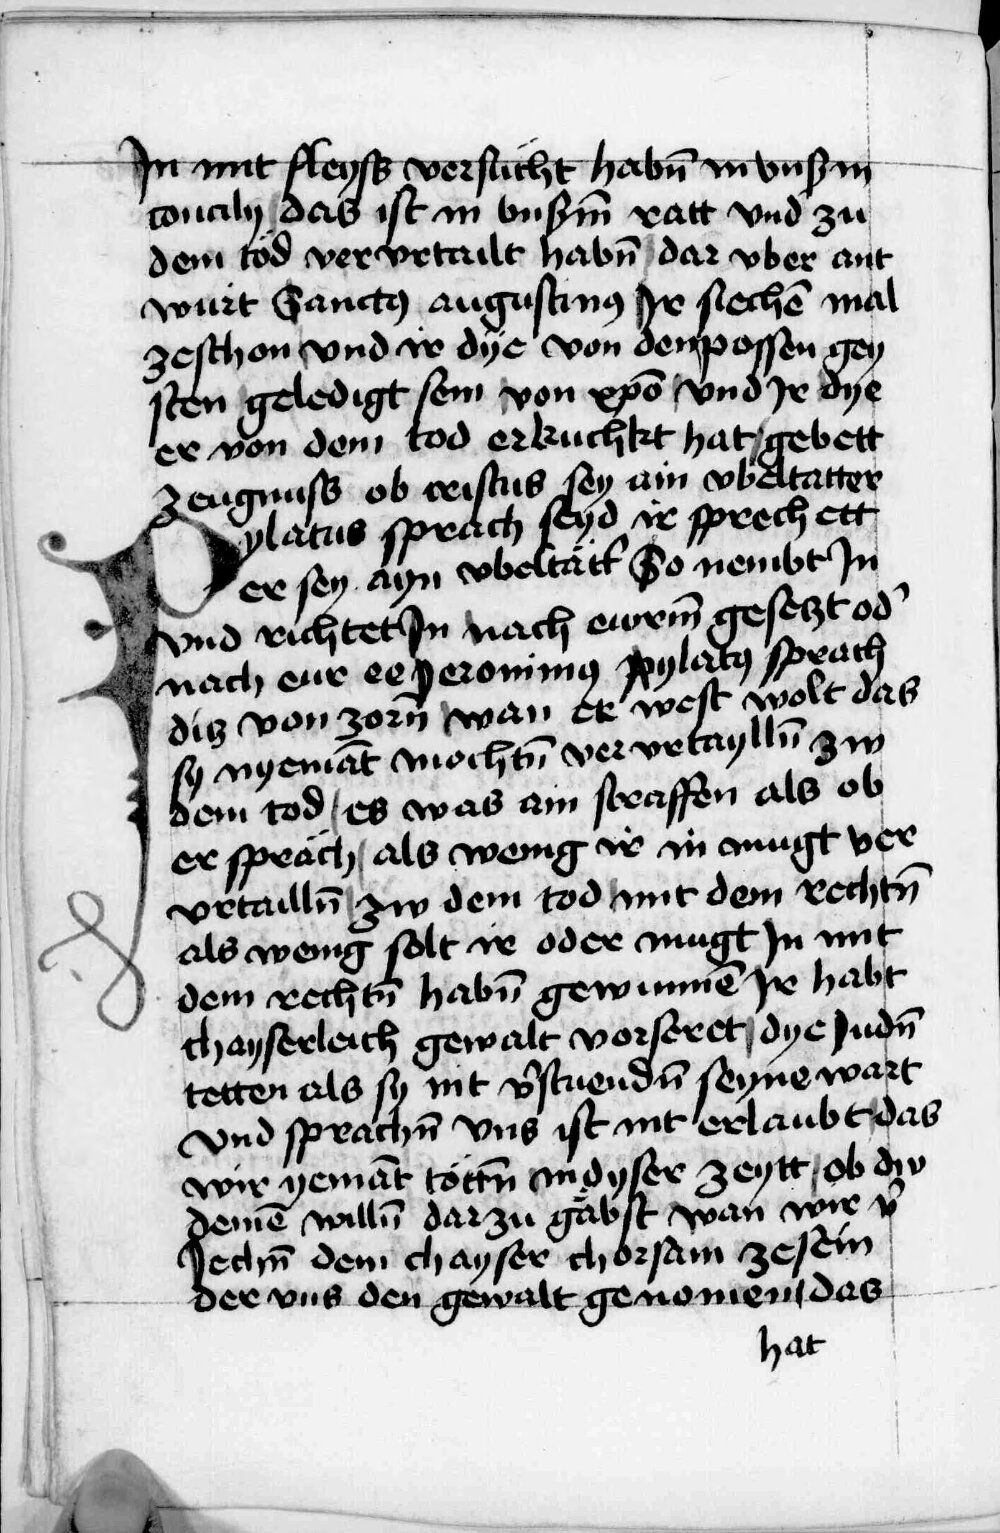 Jn mit fleyss versücht habn̄ in vnserm
concily / das ist in vnserm̄ ratt vnd zu
dem töd ver vrtailt habn̄ / dar vber ant
würt Sanctꝰ augustinꝰ Jr siechē mal
zeschon vnd ir dÿe von den possen gey
sten geledigt sein / von xpō / vnd Jr dye
er von dem tod erkuchkt hat / gebett
zeugnuss ob cristus sey ain vbeltatter
Pylatus sprach seÿd ir sprechett
er sey ayn vbeltätt̄ So nembt Jn
vnd richtet Jn nach ewrm̄ gesetzt od̄
nach eur ee Jeronimꝰ pylatꝰ sprach
ditz von zorn̄ wan er west wolt das
sy nyemāt mochtn̄ ver vrtaylln̄ zw
dem tod / es was ain straffen als ob
er spräch / als wenig ir in mugt ver
vrtailln̄ / zw dem tod / mit dem rechtn̄
als wenig solt ir oder mugt Jn mit
dem rechtn̄ habn̄ gewinnē Jr habt
chayserleich gewalt vorseret / dye Judn̄
tetten als sy nit v̄stuendn̄ seyne wart
vnd sprachn̄ vns ist nit erlaubt / das
wir yemāt töttn̄ in dyser zeytt / ob dw
deinē willn̄ dar zu gäbst wan wir v̄
Jechn̄ dem chayser chorsam ze sein
der vns den gewalt genomen / das
hat